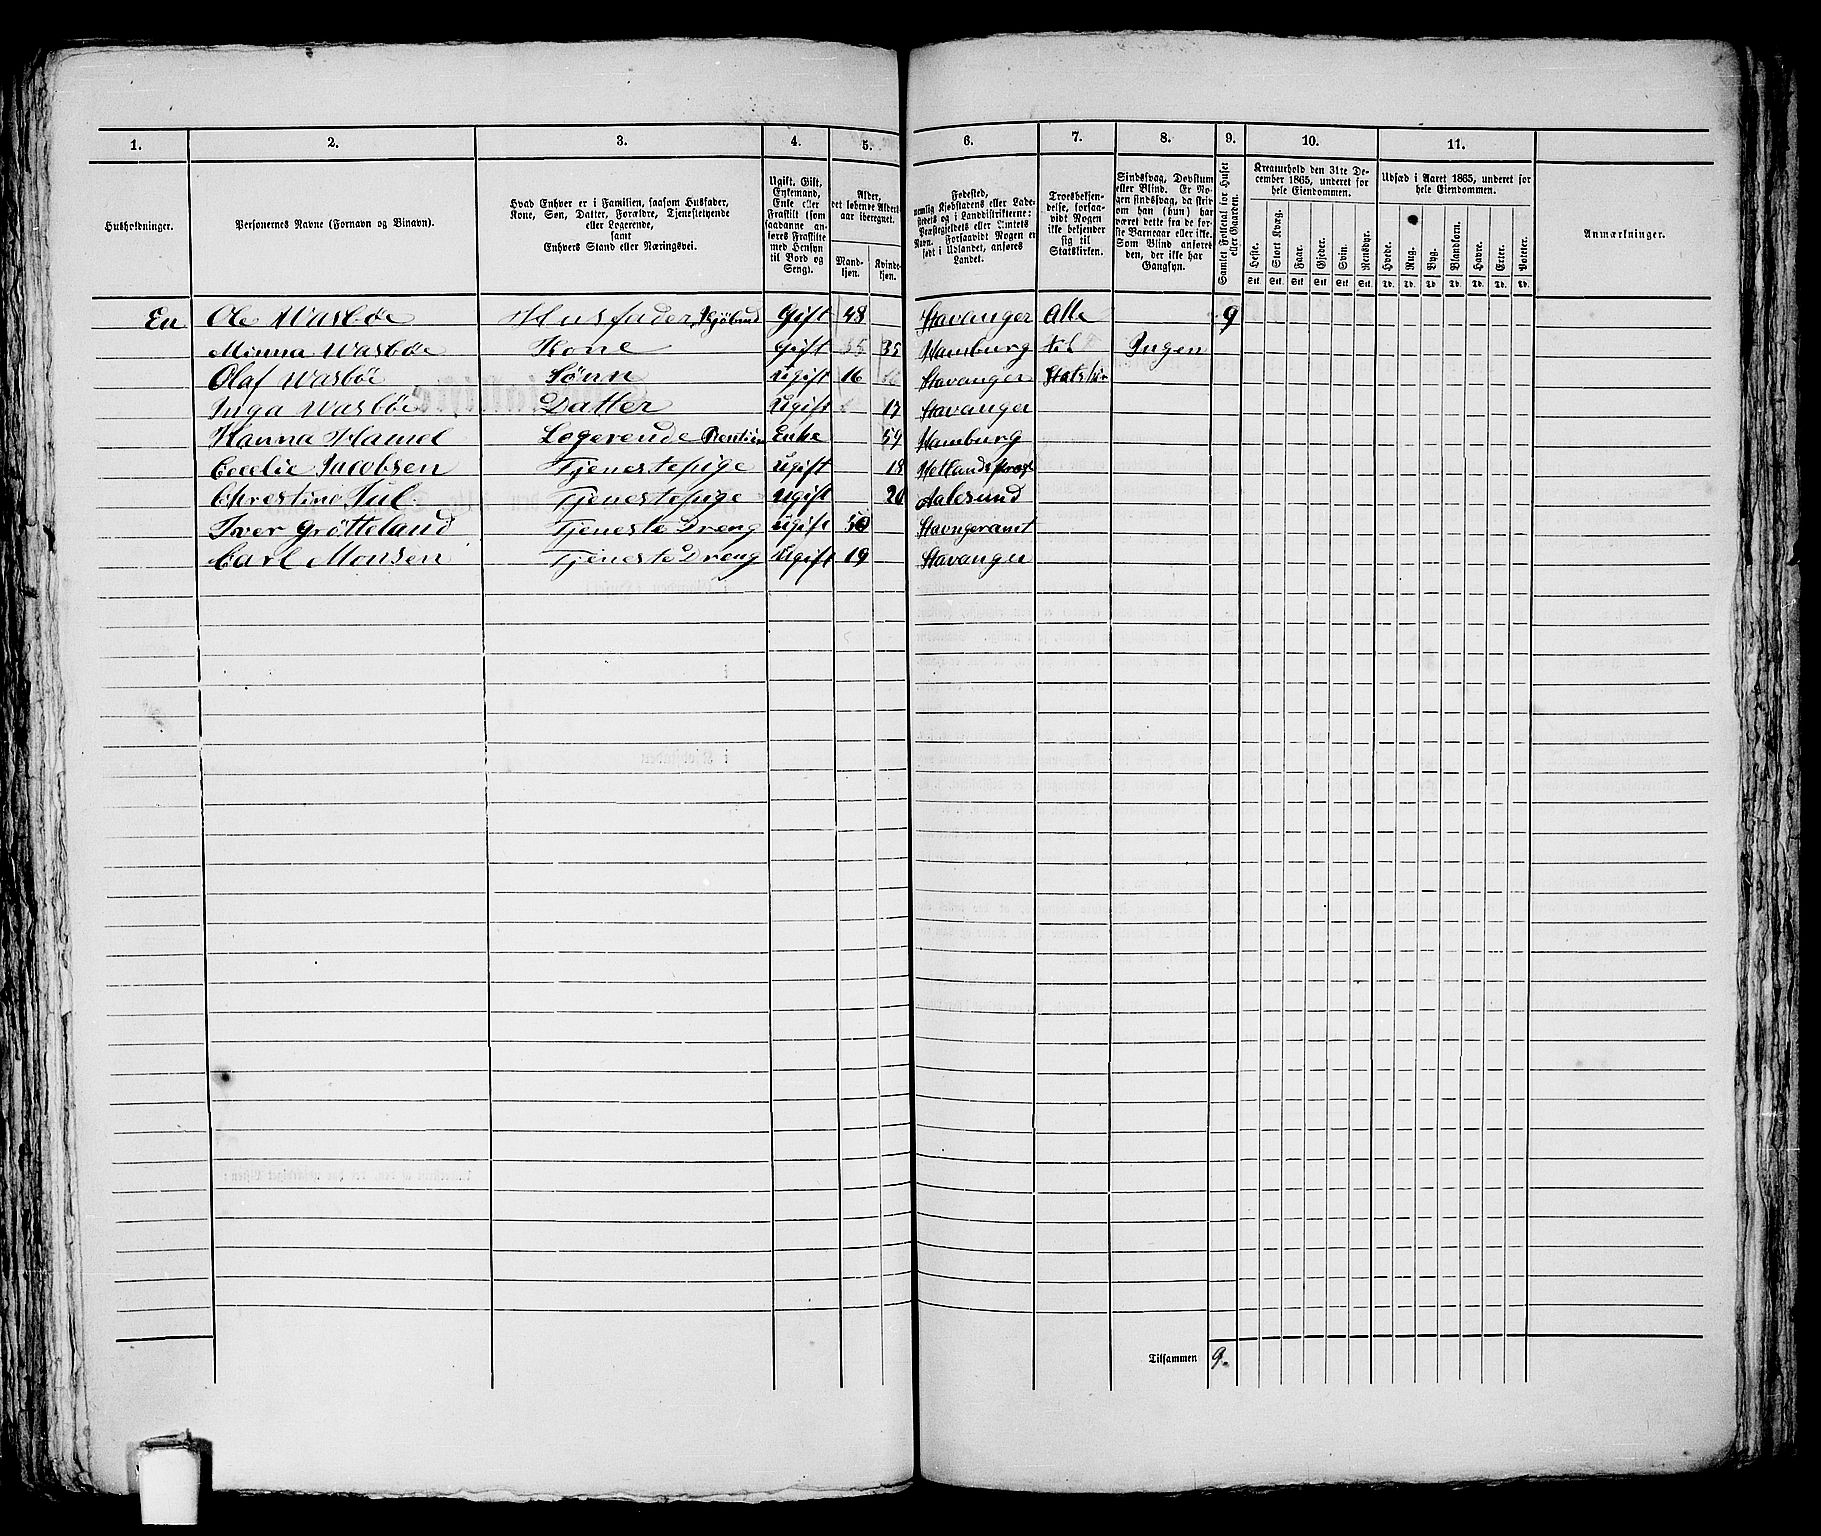 1. 2. 3. 4. 5. 6. 7. 8. 9. 10. 11.
Husholdninger.
Personernes Navne (Fornavn og Binavn).
Hvad Enhver er i Familien, saasom Husfader,
Kone, Søn, Datter, Forældre, Tjenestetyende
eller Logerende,
samt
Enhvers Stand eller Næringsvei.
Ugift, Gift,
Enkemand,
Enke eller
Fraskilt (som
saadanne an-
føres Fraskilte
med Hensyn
til Bord og
Seng).
Alder,
det løbende Alders-
aar iberegnet.
Mand-
kjøn.
Kvinde-
kjøn.
Fødested,
nemlig Kjøbstadens eller Lade-
stedets og i Landdistrikterne:
Præstegjeldets eller Sintets
Navn. Forsaavidt Nogen er
født i Udlandet, anføres
Landet.
Troesbekjen-
delse, forsaa-
vidt Nogen
ikke bekjender
sig til
Statskirken.
Sindssvag, Døvstum
eller Blind. Er No-
gen sindssvag, da skriv
om han (hun) har
været dette fra de før-
ste Barneaar eller ikke.
Som Blind anføres
den, der ikke har
Gangsyn.
Samlet Folketal for Huset
eller Gaarden.
Kreaturhold den 31te De-
cember 1865, underet for
hele Eiendommen.
Heste. Stort Kvæg. Faar. Gjeder. Svin. Rensdyr.
Stk. Stk. Stk. Stk. Stk. Stk.
Udsæd i Aaret 1865, underet for
hele Eiendommen.
Hvede. Rug. Byg. Blandkorn. Havre. Erter. Poteter.
Td. Td. Td. Td. Td. Td. Td.
Anmærkninger.
En Ole Wasbøe Husfader, Gift 48 Stavanger Alle 9
Minna Wasbøe Kone Gift 35 Hamburg til Ingen
Olaf Wasbøe Sønn Ugift 16 Stavanger
Inga Wasbøe Datter Ugift 17 Stavanger
Hanna Hamel Logerende Enke 54 Hamburg
Cecelie Jacobsen Tjenestepige Ugift 18
Christine Jul Tjenestepige Ugift 20 Aalesund
Iver Grötteland Tjeneste Dreng Ugift 50 Stavngeramt
Carl Monsen Tjeneste Dreng Ugift 19 Stavanger
Tilsammen 9.